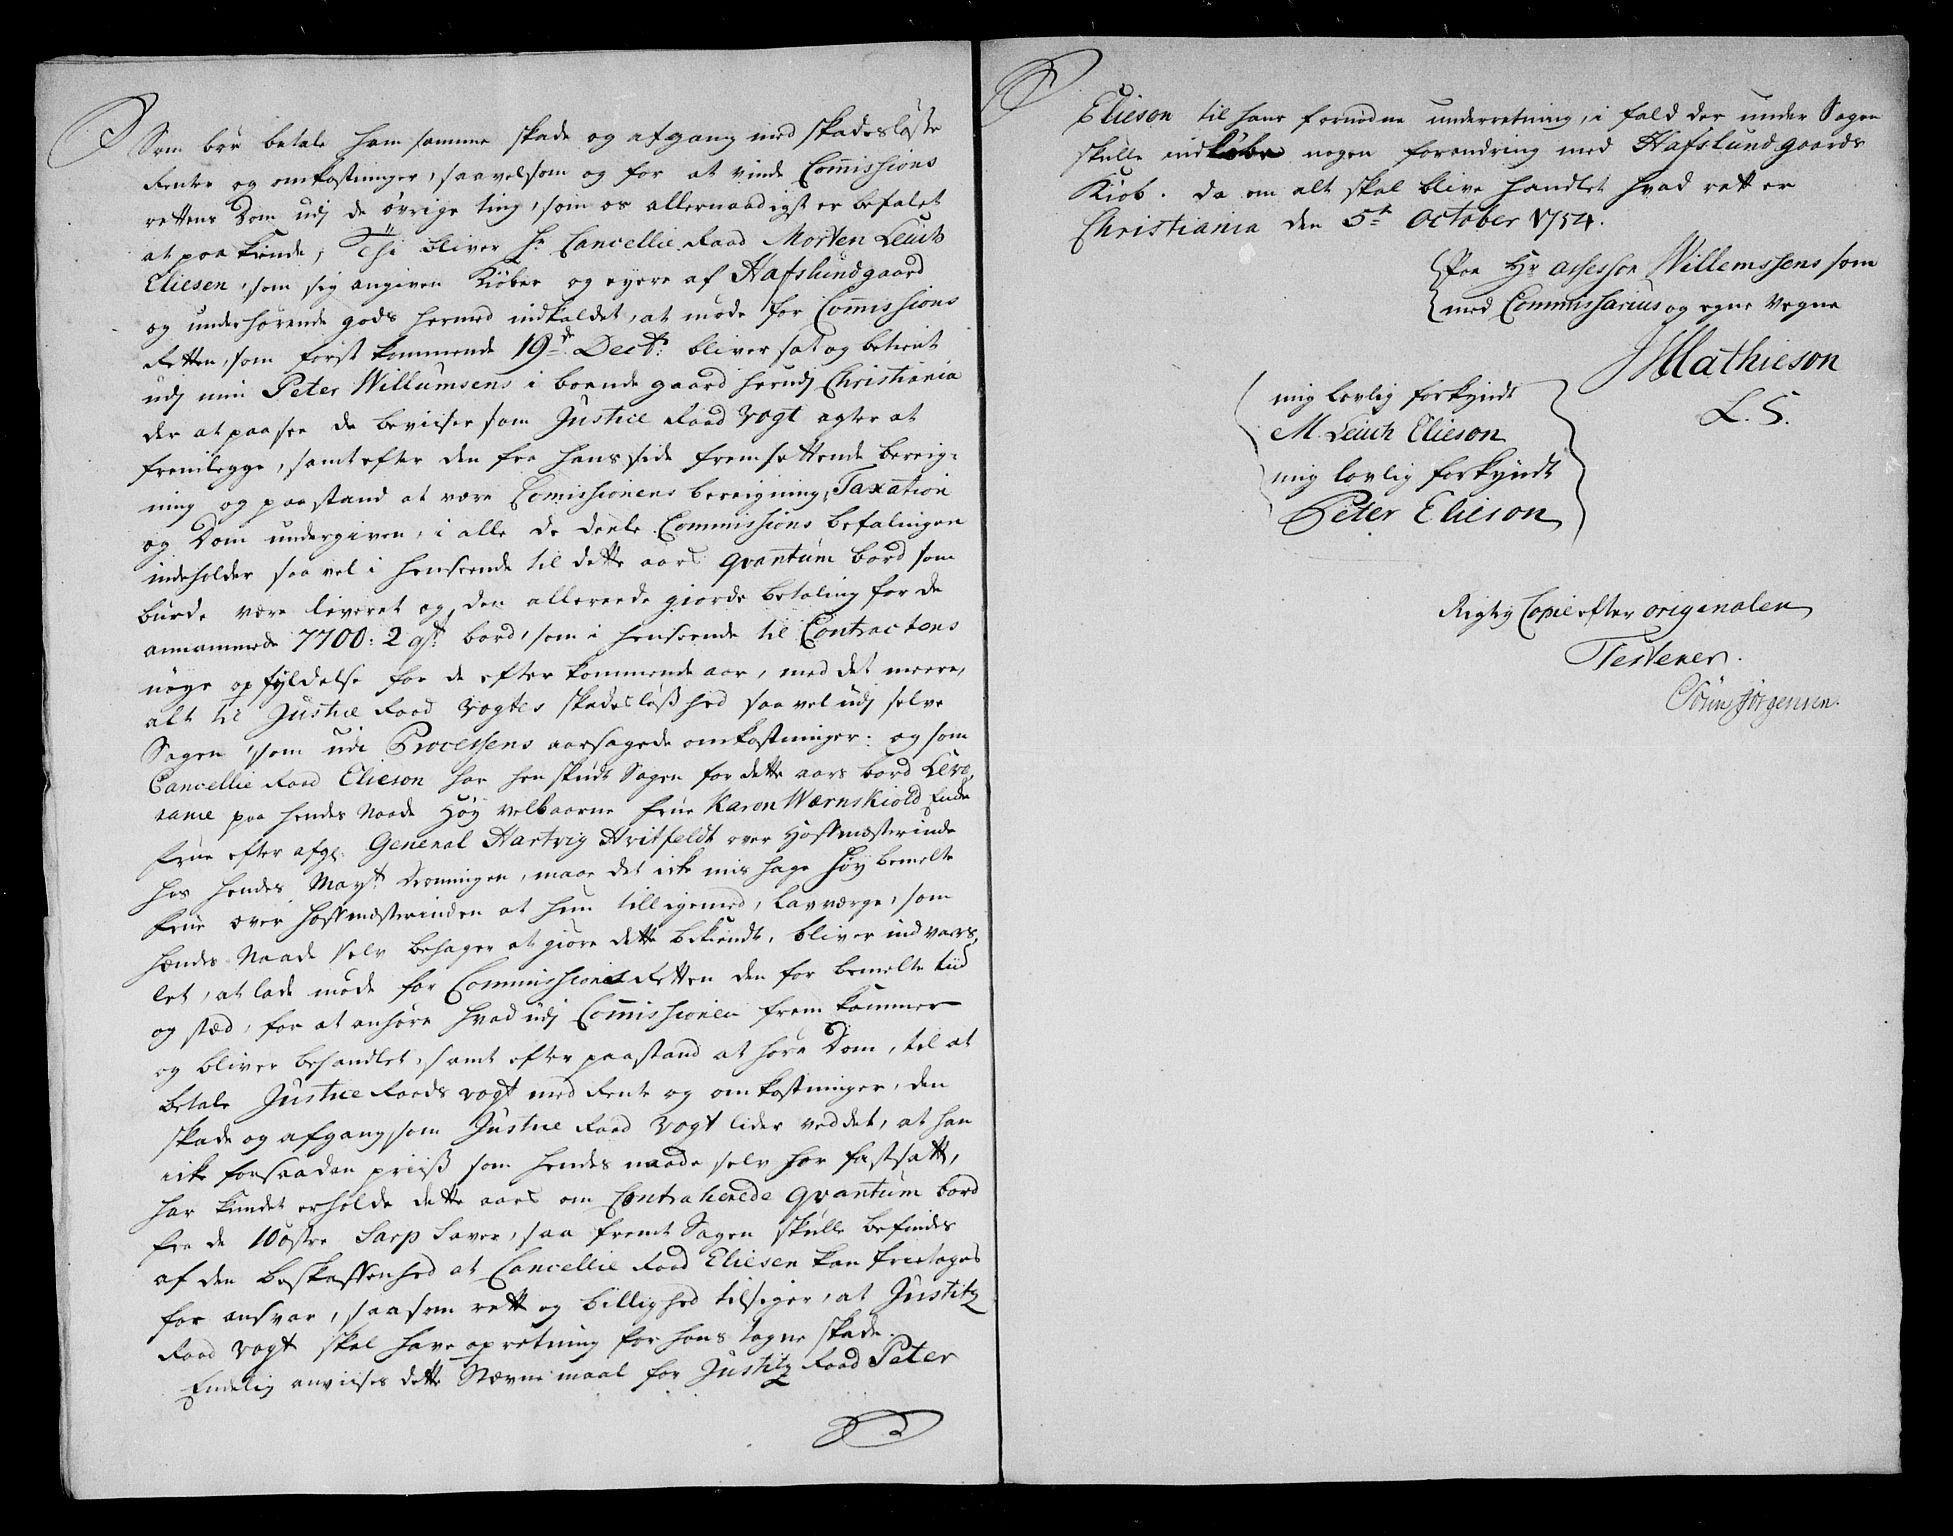 Som bør betale ham samme skade og afgang med skadesløsse
Rente og omkostninger, saavelsom og for at vinde Com̅issions
rettens Dom udj de øvrige ting, som os allernaadigst er befalet
at paa kiende, Thi bliver Hr Cancellie Raad Morten Leuch
Eliesen, som sig angiven Kiøber og eyere af Hafslundgaard
og underhørende gods hermed indkaldet, at møde for Com̅issions
Retten, som først kommende 19de Decbr: bliver sat og betient
udj min Peter Willumsens i boende gaard herudj Christiania
der at paasee de beviiser som Justice Raad Vogt agter at
fremlegge, samt efter den fra hans side fremsættende bereig-
ning og paastand at være Comissionens bereigning, Taxation
og Dom undergiven, i alle de deele Commissions befalingen
indeholder saa vel i henseende til dette aars qvantum bord som
burde være liveret og den allereede giorde betaling for de
annammede 7700: 2 qt bord, som i henseende til Contractens
nøye opfyldelse for de efter kommende aar, med det meere,
alt til Justice Raad Vogtes skadesløshed saa vel udj selve
Sagen som udi Processens aarsagede omkostninger: og som
Cancellie Raad Elieson har henskudt Sagen for dette aars bord Leve-
rance paa hendes Naade Høy velbaarne Frue Karen Wærnskiold Enke
Frue efter afg: General Hartvig Hvitfeldt over Hoffmesterinde
hos hendes Mayt. Dronningen, maae det icke mishage høy bemelte
Frue over Hoffmesterinden at hun tilligemed, Lavværge, som
hendes Naade selv behager at giøre dette bekiendt, bliver indvars-
let, at lade møde for Commissions Retten den for bemelte tiid
og stæd, for at anhøre hvad udj Com̅issionen frem kommer
og bliver behandlet, samt efter paastand at høre Dom, til at
betale Justice Raads Vogt med Rente og omkostninger, den
skade og afgang som Justice Raad Vogt lider ved det, at han
icke for saadan priis som hendes naade selv har fastsatt,
har kundet erholde dette aars om Contraherede qvantum bord
fra de 10 østre Sarp Sauer, saa fremt Sagen skulle befindes
af den beskaffenhed at Cancellie Raad Eliesen kan fritages
for ansvar, saasom rett og billighed tilsiger, at Justitz
Raad Vogt skal have opretning for hans tagne skade.
Endelig anviises dette Stævnemaal for Justitz Raad Peter
Elieson til hans fornødne underretning, i fald der under Sagen
skulle indløbe nogen forandring med Hafslund gaards
Kiøb. Da om alt skal blive handlet hvad rett er
Christiania den 5te October 1754.
Paa Hr assessor Willemssens som
med Commissarius og egne Vegne
JMathieson
L. S.
mig lovlig forkyndt
M. Leuch Elieson
mig lovlig forkyndt
Peter Elieson
Rigtig Copie efter originalen
Testerer.
Jørgensen.